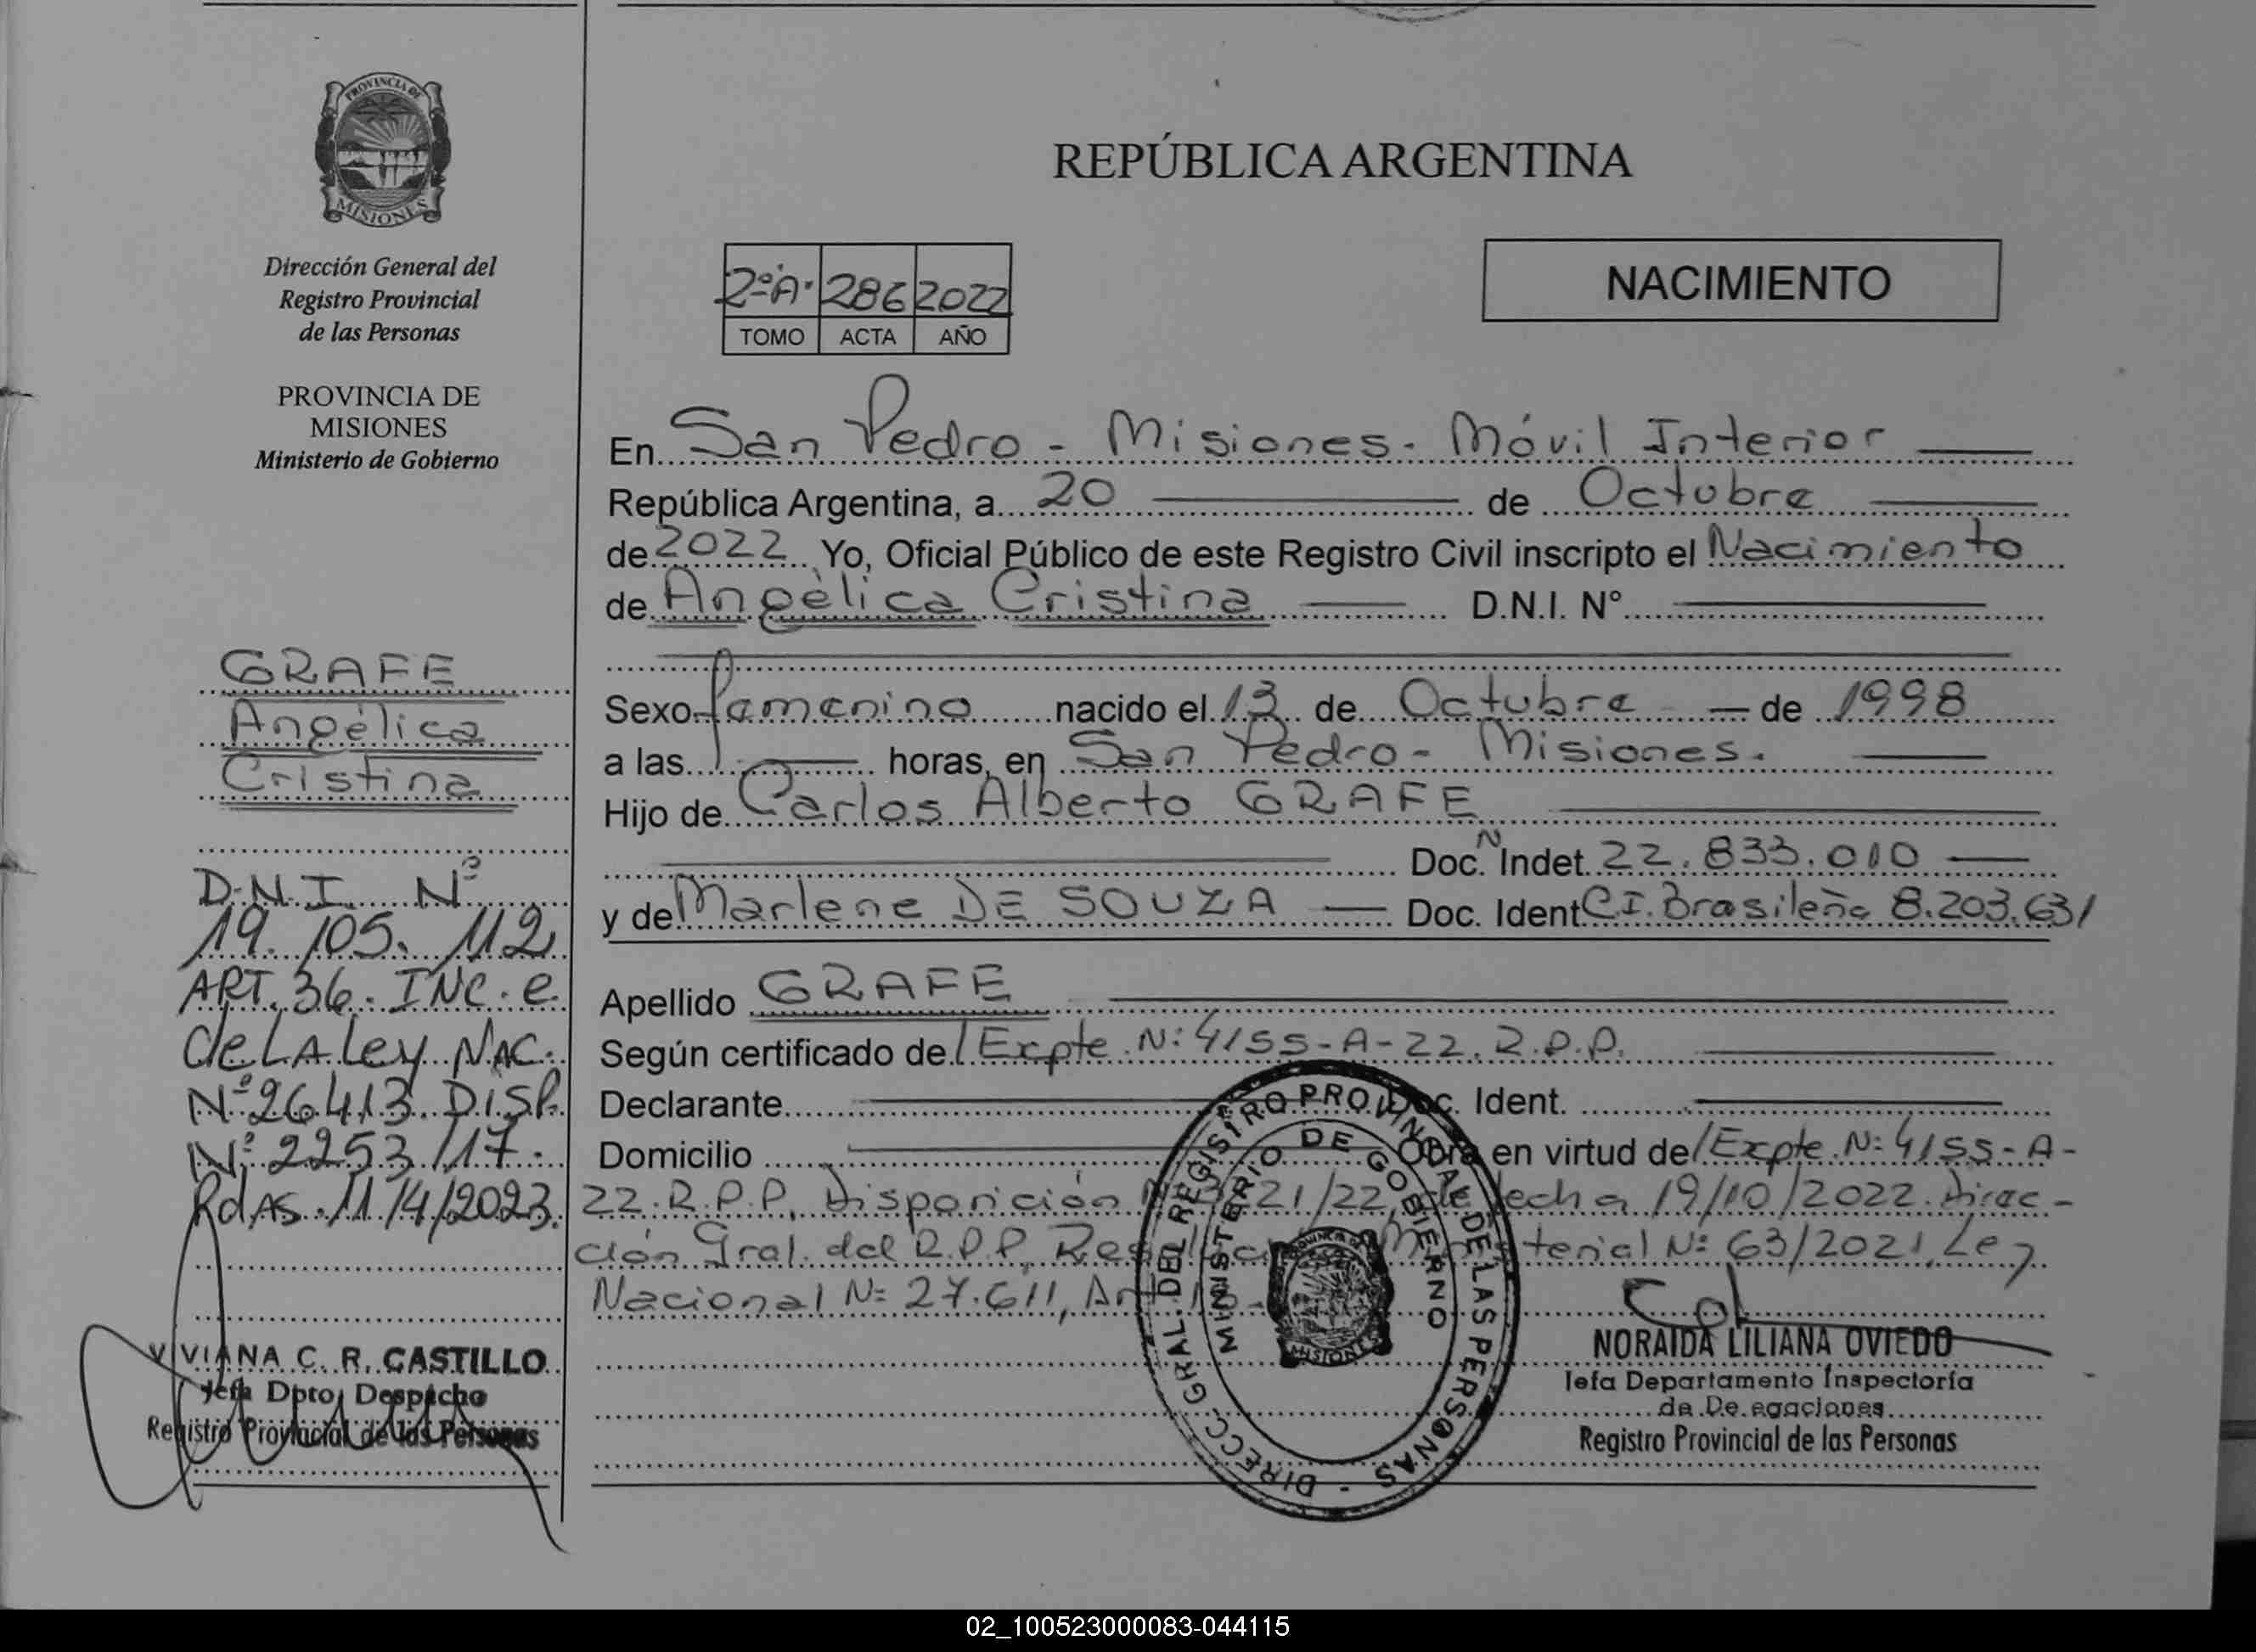 PROVINCIA DE
MISIONES
Dirección General del
Registro Provincial
de las Personas
PROVINCIA DE
MISIONES
Ministerio de Gobierno
GRAFE
Angélica
Cristina
D.N.I. Nº
19.105.112
ART. 36. INC. e
de LA Ley NAC.
Nº 26413 DISP.
Nº 2253/17.
RdAS. 11/4/2023.
VIVIANA C. R. CASTILLO
Jefa Dpto. Despacho
Registro Provincial de las Personas
REPÚBLICA ARGENTINA
2ºA. 286 2022
TOMO ACTA AÑO
NACIMIENTO
En San Pedro - Misiones. Móvil Interior
República Argentina, a 20 de Octubre
de 2022 Yo, Oficial Público de este Registro Civil inscripto el Nacimiento
de Angélica Cristina D.N.I. N°
Sexo femenino nacido el 13 de Octubre de 1998
a las horas, en San Pedro - Misiones.
Hijo de Carlos Alberto GRAFE
Doc. N Indet. 22.833.010
y de Marlene DE SOUZA Doc. Ident C.I. Brasileña 8.203.631
Apellido GRAFE
Según certificado de l Expte Nº 4155-A-22. R.P.P.
Declarante Doc. Ident.
Domicilio Obra en virtud del Expte Nº 4155-A-
22. R.P.P. Disposición 21/22, de fecha 19/10/2022. Direc-
ción Gral. del R.P.P. Ministerial Nº 63/2021, Ley
Nacional Nº 27.611, Art.
DIRECC. GRAL. DEL REGISTRO PROVINCIAL DE LAS PERSONAS -
MINISTERIO DE GOBIERNO
PROVINCIA DE
MISIONES
NORAIDA LILIANA OVIEDO
Jefa Departamento Inspectoría
de De egaciones
Registro Provincial de las Personas
02_100523000083-044115